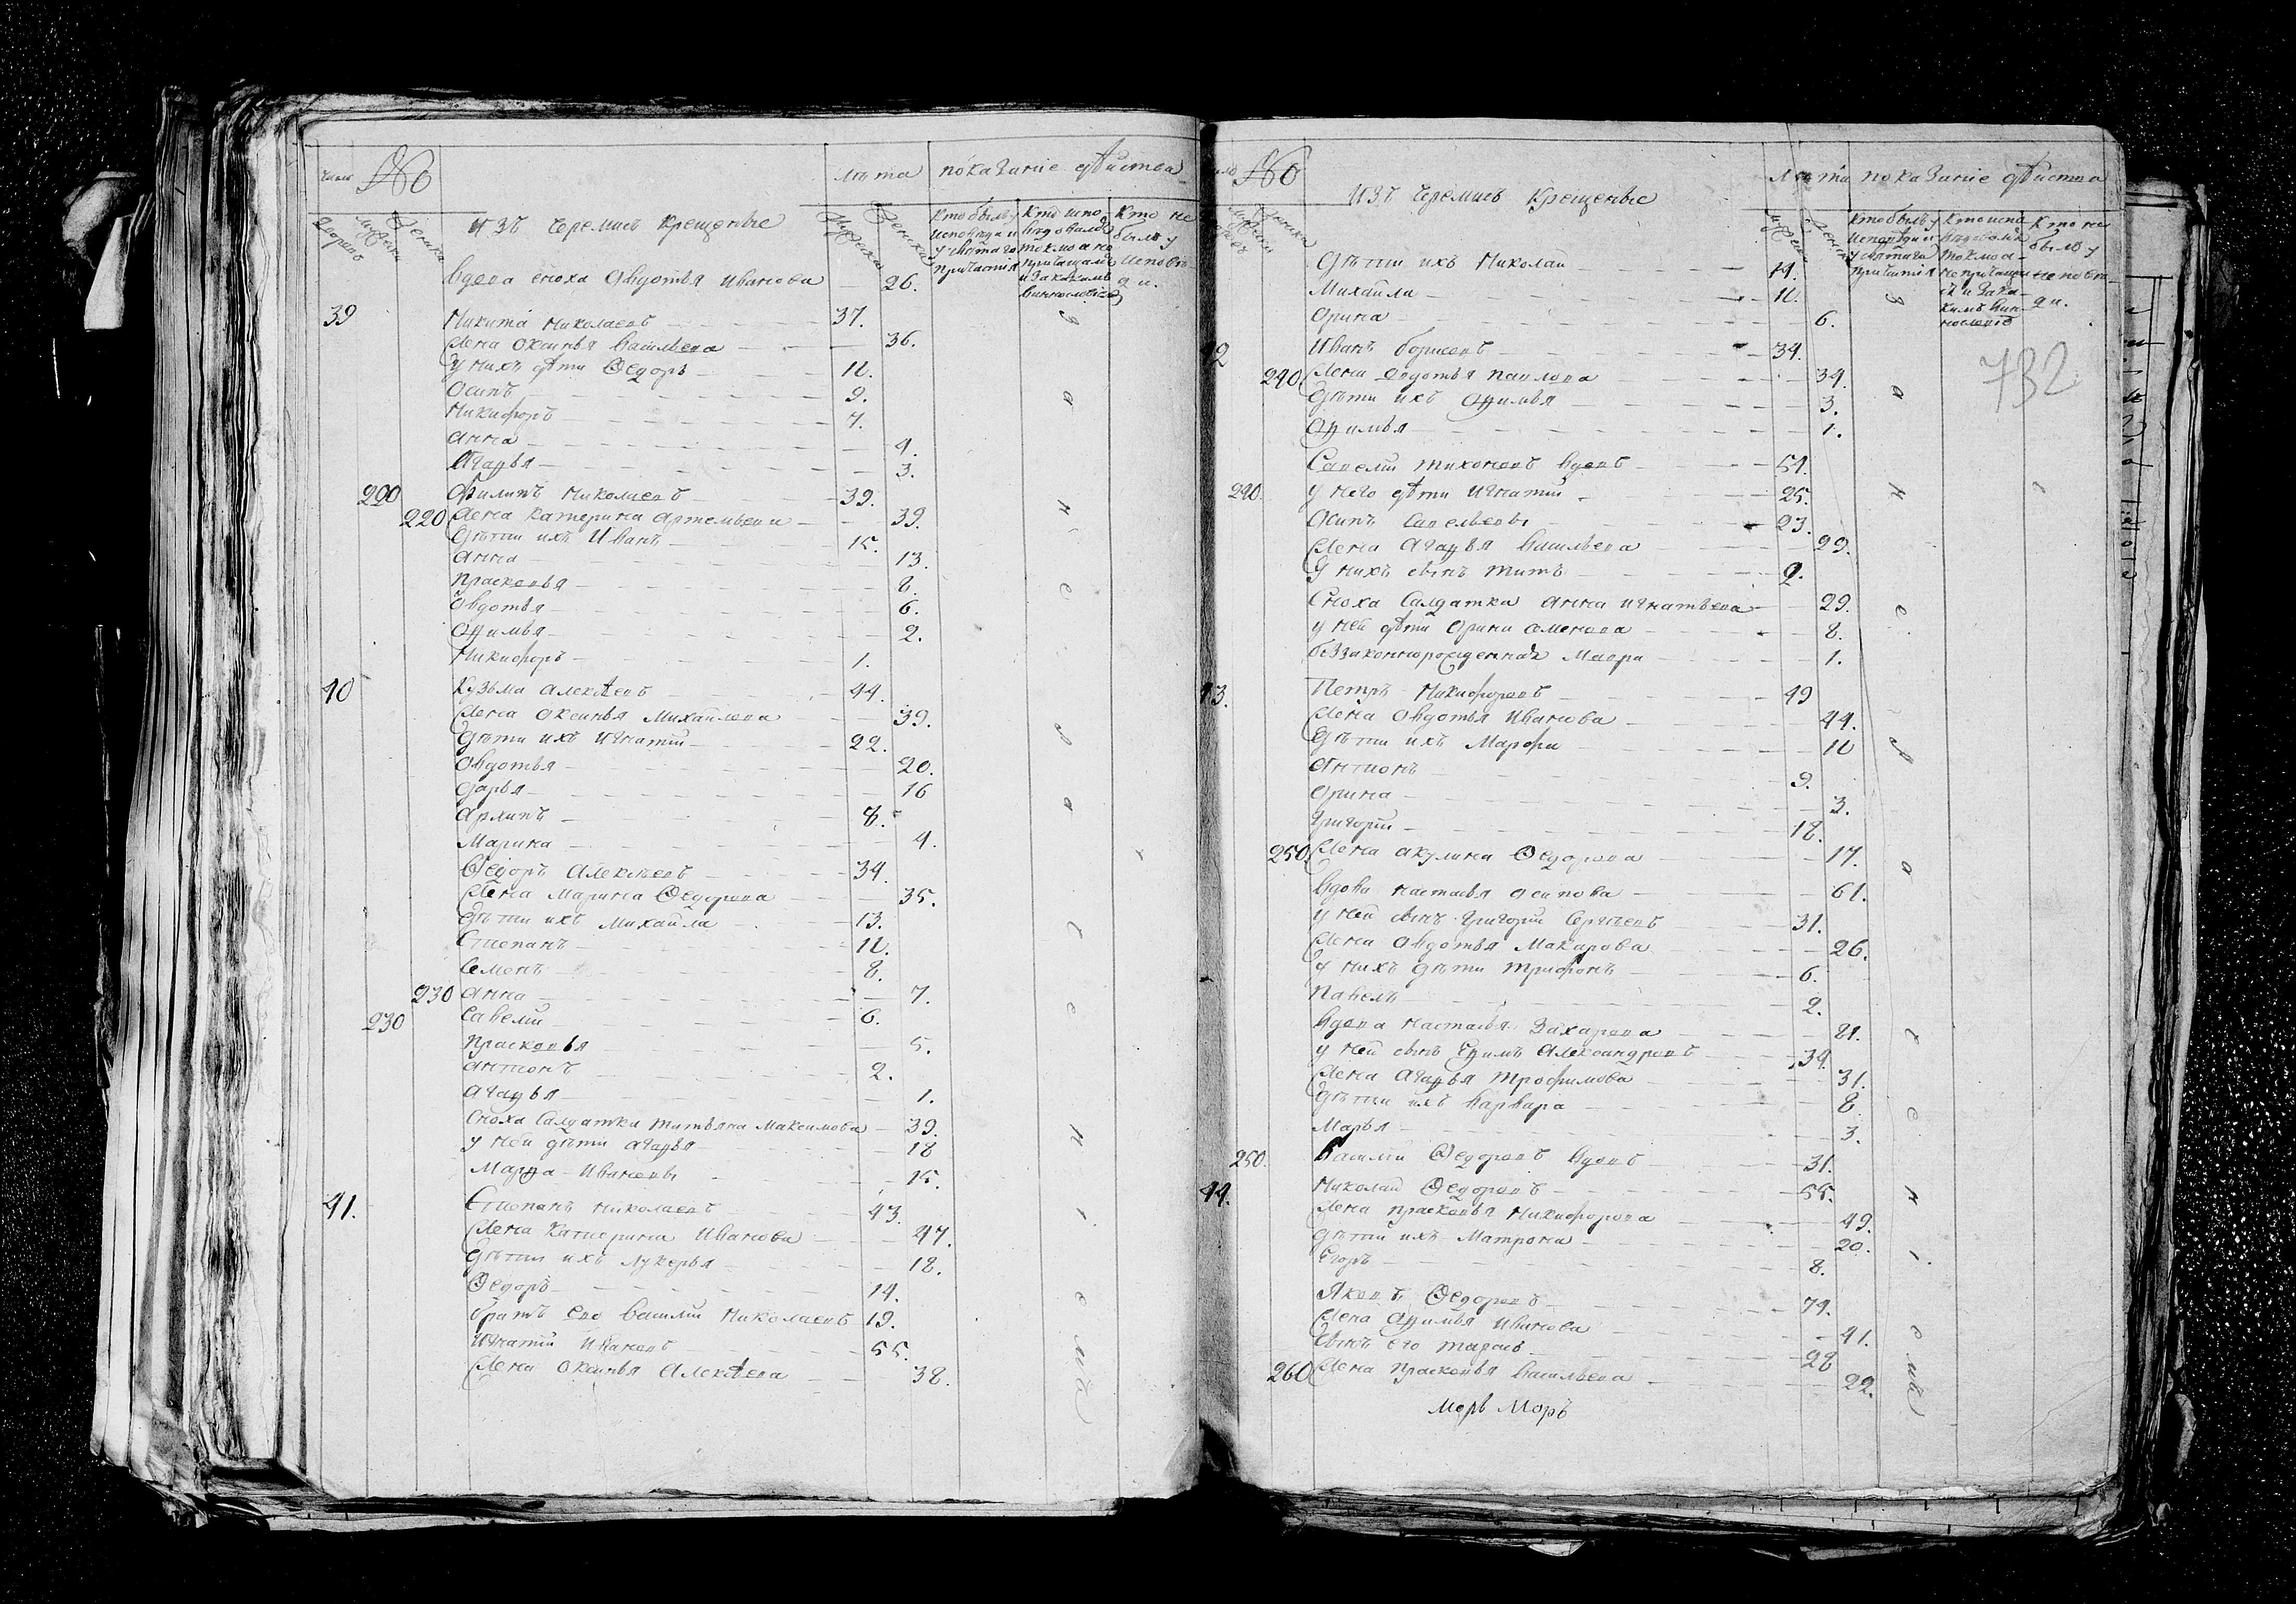 число №
лѣта показаніе дѣйства
Дворовъ Мужска Женска
изъ черемисъ крещеные
Мужска Женска
Кто былъ у исповѣди и у святаго причастія
Кто исповѣдовался токмо а не причащался и за какимъ винословіемъ
Кто не былъ у исповѣди.
вдова сноха Овдотья Иванова — 26.
39 Никита Николаевъ — 37.
Жена Оксинья Васильева — 36.
у нихъ дѣти Ѳедоръ — 11.
Осипъ — 9.
Никифоръ — 7.
Анна — 4.
Агафья — 3.
220 Филипъ Николаевъ — 39.
220 Жена Катерина Артемьева — 39.
Дѣти ихъ Иванъ — 15.
Анна — 13.
Прасковья — 8.
Овдотья — 6.
Афимья — 2.
Никифоръ — 1.
40 Кузьма Алексѣевъ — 44.
Жена Оксинья Михайлова — 39.
Дѣти ихъ Игнатій — 22.
Овдотья — 20.
Дарья — 16
Архипъ — 8.
Марина — 4.
Ѳедоръ Алексѣевъ — 34.
Жена Марина Ѳедорова — 35.
Дѣти ихъ Михайла — 13.
Степанъ — 11.
Семенъ — 8.
230 Анна — 7.
230 Савелій — 6.
Прасковья — 5.
Антонъ — 2.
Агафья — 1.
Сноха Салдатка Татьяна Максимова — 39.
у ней дѣти Агафья — 18
Марфа Ивановы — 15.
41. Степанъ Николаевъ — 43.
Жена Катерина Иванова — 47.
Дѣти ихъ Лукерья — 18.
Ѳедоръ — 14.
братъ его Василій Николаевъ 19.
Игнатій Ивановъ — 55.
Жена Оксинья Алексѣева — 38.
з а н е в о с т н і е м ъ
№
изъ черемисъ крещеные
Лѣта показаніе дѣйства
Мужска Женска
Мужска Женска
Кто былъ у исповѣди и у святаго причастія
Кто исповѣдовался токмо а не причащался и за какимъ винословіе
Кто не былъ у исповѣди.
Дѣти ихъ Николай — 14.
Михайла — 11.
Орина — 6.
42 Иванъ Борисовъ — 34.
240 Жена Овдотья Павлова — 34.
Дѣти ихъ Афимья — 3.
Афимья — 1.
732
Савелій Тихоновъ вдовъ — 51.
240. у него дѣти Игнатій — 25.
Осипъ Савельевы — 23.
Жена Агафья Васильева — 29.
у нихъ сынъ Титъ — 2.
Сноха Салдатка Анна Игнатьева — 29.
у ней дѣти Орина Семенова — 8.
беззаконнорожденная Мавра — 1.
43. Петръ Никифоровъ — 49
Жена Овдотья Иванова — 44.
Дѣти ихъ Марфа — 11
Антонъ — 9.
Орина — 3.
Григорій — 18.
250 Жена Акулина Ѳедорова — 17.
Вдова Настасья Осипова — 61.
у ней сынъ Григорій Сергѣевъ — 31.
Жена Овдотья Макарова — 26.
у нихъ дѣти Трифонъ — 6.
Павелъ — 2.
Вдова Настасья Захарова — 81.
у ней сынъ Ефимъ Александровъ — 34.
Жена Агафья Трофимова — 31.
Дѣти ихъ Варвара — 8
Марья — 3.
250. Василій Ѳедоровъ вдовъ — 31.
44. Николай Ѳедоровъ — 55.
Жена Прасковья Никифорова — 49.
Дѣти ихъ Матрона — 20.
Егоръ — 8.
Яковъ Ѳедоровъ — 74.
Жена Афимья Иванова — 41.
Сынъ его Тарасъ — 28
260 Жена Прасковья Васильева — 22.
з а н е в о с т н і е м ъ